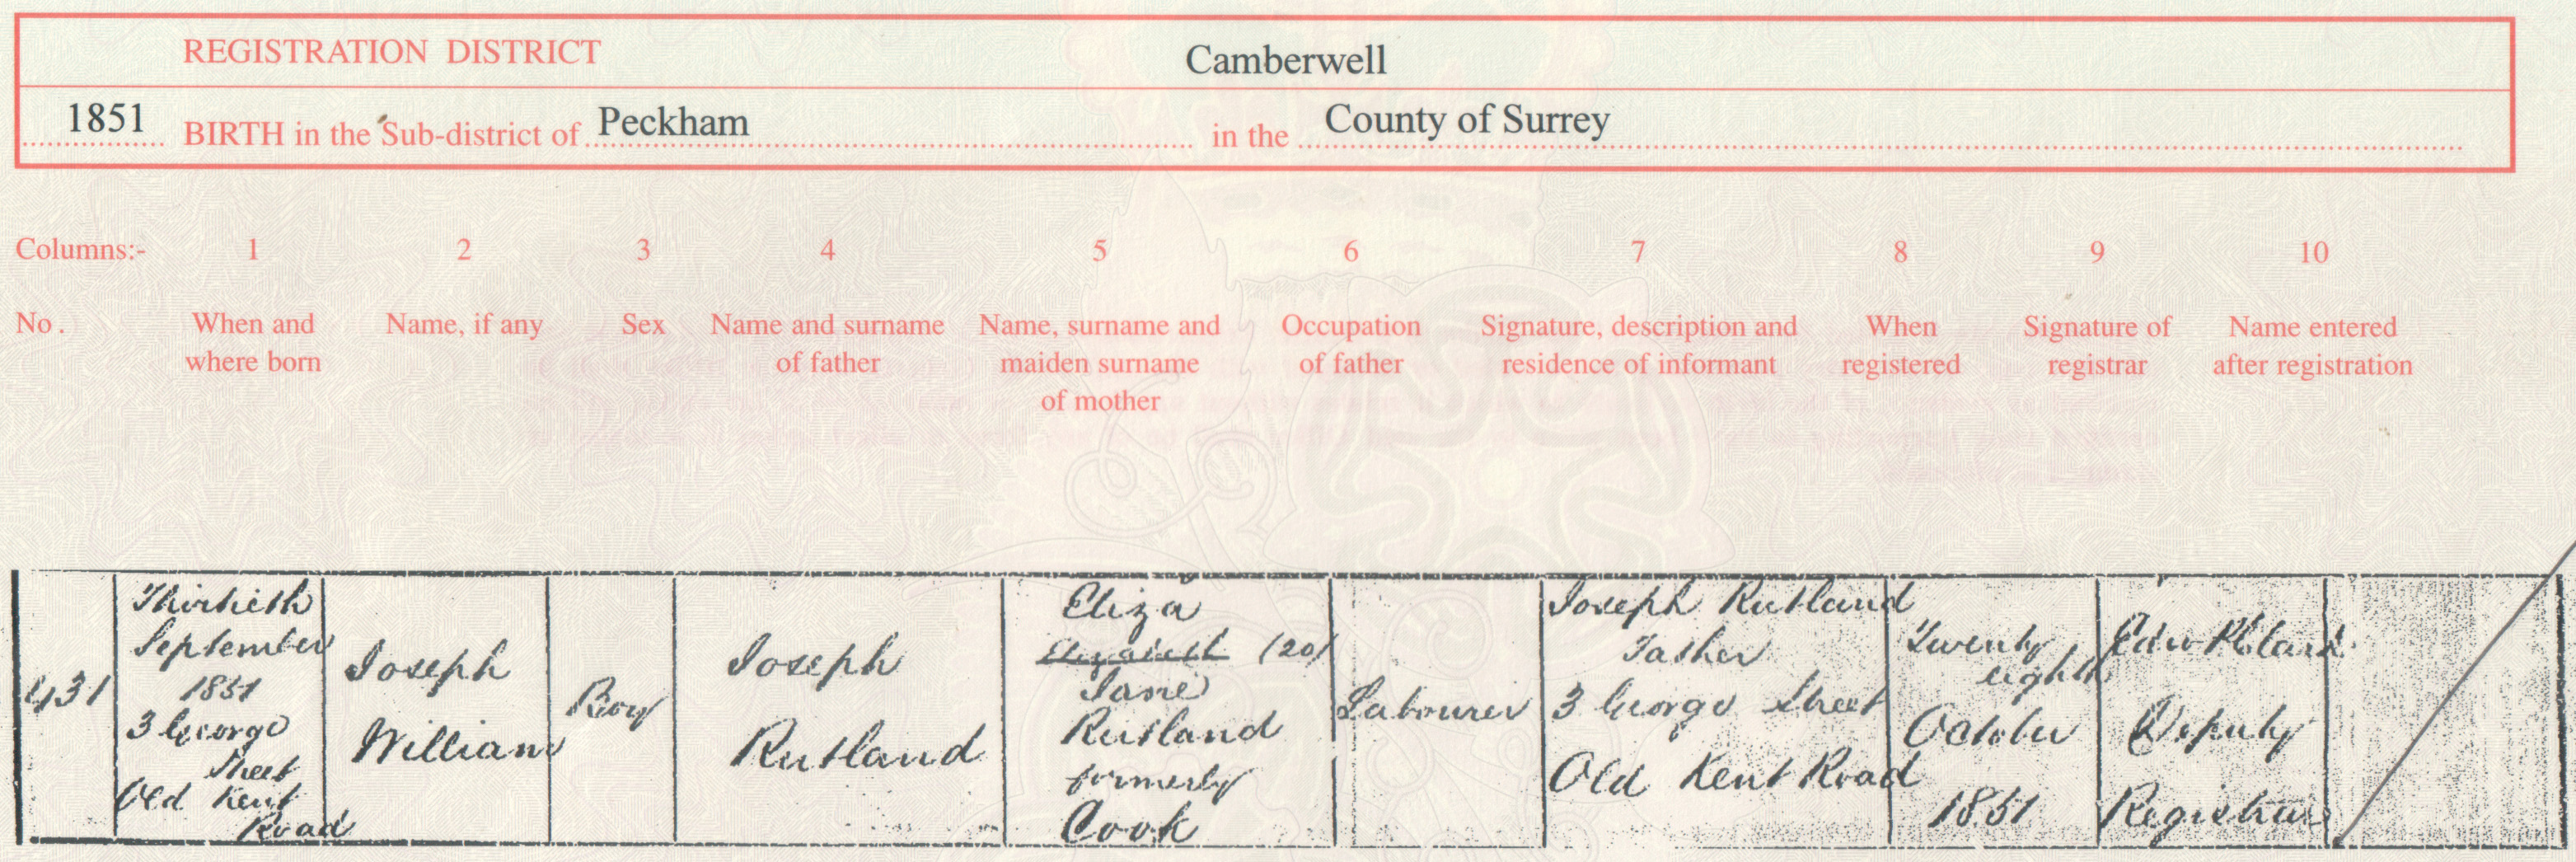 REGISTRATION DISTRICT Camberwell
1851 BIRTH in the Sub-district of Peckham in the County of Surrey
Columns:- 1 2 3 4 5 6 7 8 9 10
No. When and where born Name, if any Sex Name and surname of father Name, surname and maiden surname of mother Occupation of father Signature, description and residence of informant When registered Signature of registrar Name entered after registration
431
Thirtieth
September
1851
3 George
Street
Old Kent
Road
Joseph
William
Boy
Joseph
Rutland
Eliza
Elizabeth (20)
Jane
Rutland
formerly
Cook
Labourer
Joseph Rutland
Father
3 George Street
Old Kent Road
Twenty
eighth
October
1851
Edw
Deputy
Registrar